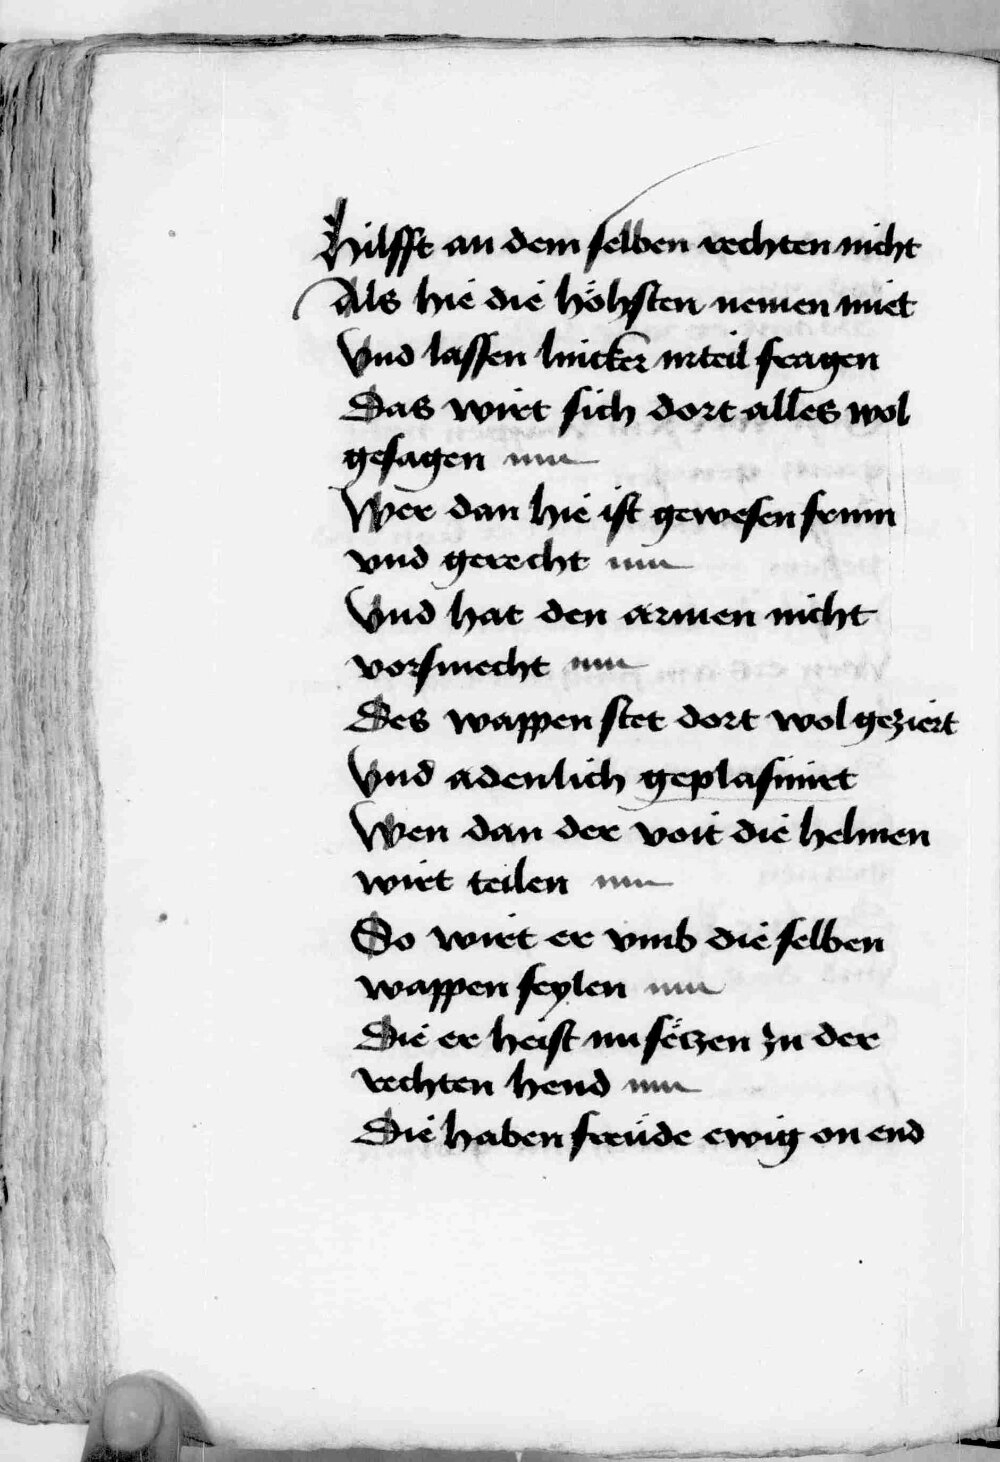 Hilfft an dem selben rechten nicht
Als hie die höhsten nemen miet
Vnd lassen lincker vrteil fragen
Das wirt sich dort alles wol
gesagen
Wer dan hie ist gewesen frum
vnd gerecht
Vnd hat den armen nicht
vorsmecht
Des wappen stet dort wol geziert
Vnd adenlich geplasmirt
Wen dan der voit die helmen
wirt teilen
So wirt er vmb die selben
wappen feylen
Die er heist nu setzen zu der
rechten hend
Die haben freüde ewig on end